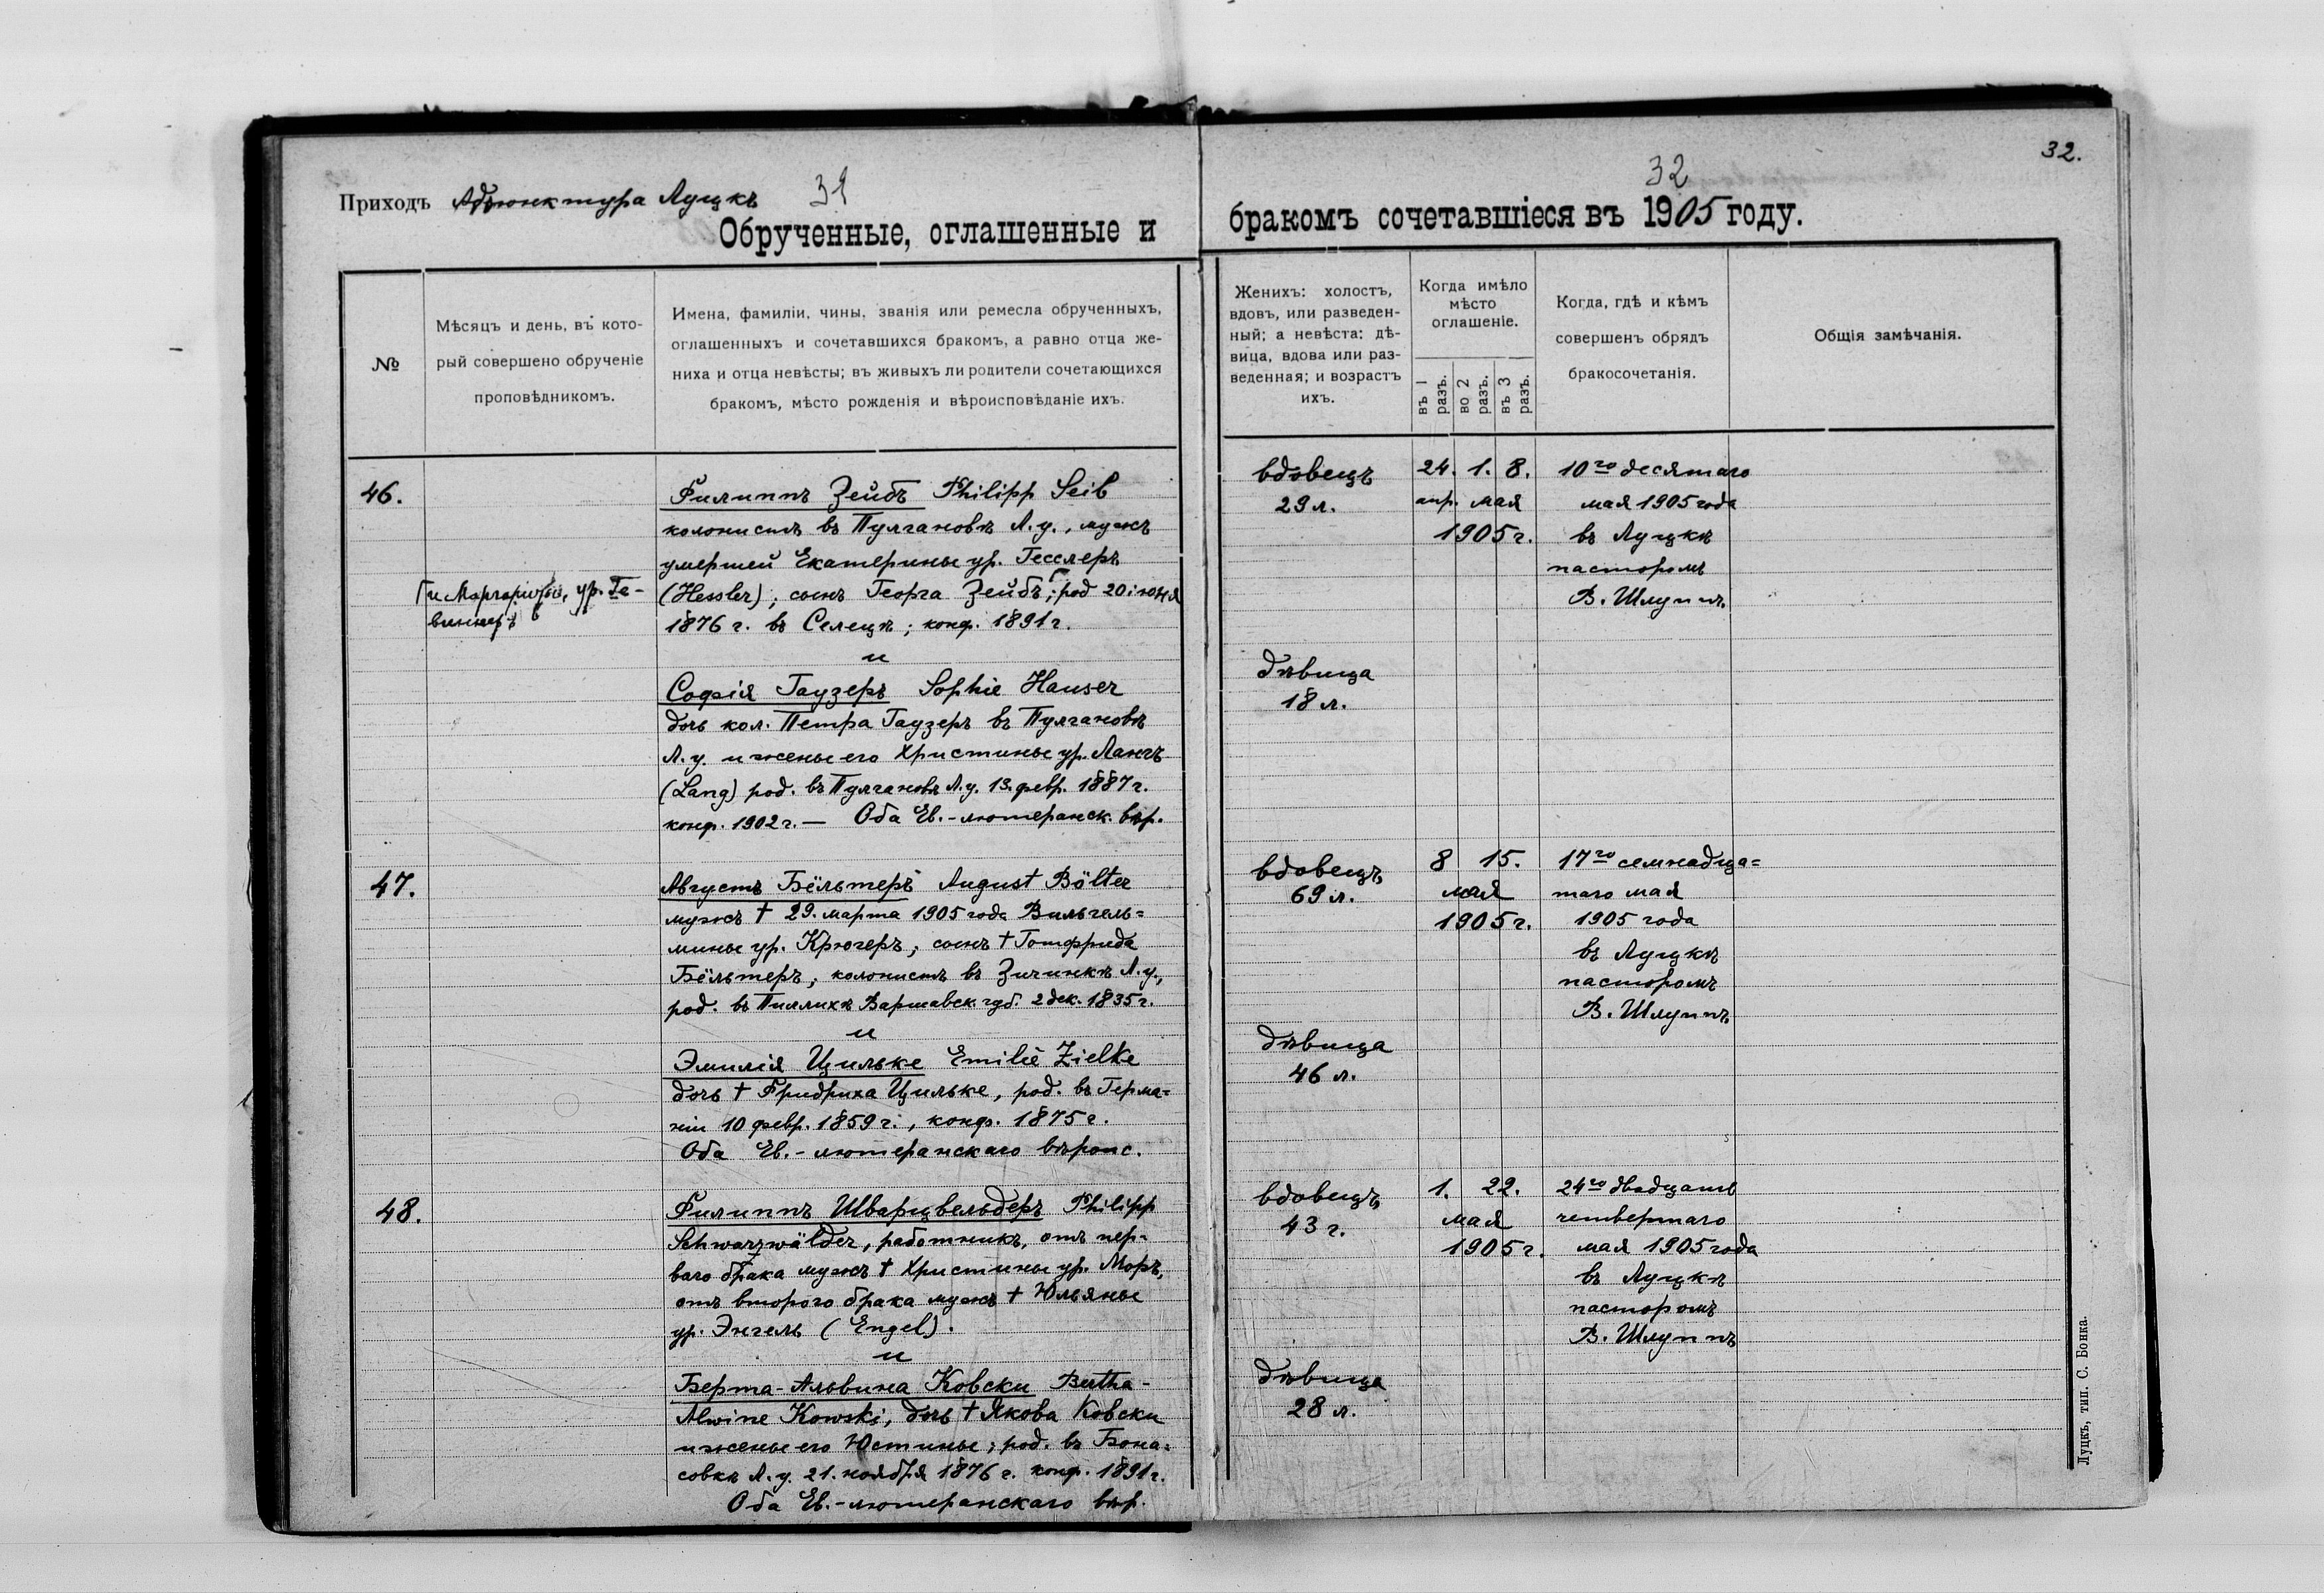 Приходъ Адъюнктура Луцкъ
31
Обрученные, оглашенные и
№
Мѣсяцъ и день, въ кото-
рый совершено обрученіе
проповѣдникомъ.
Имена, фамиліи, чины, званія или ремесла обрученныхъ,
оглашенныхъ и сочетавшихся бракомъ, а равно отца же-
ниха и отца невѣсты; въ живыхъ ли родители сочетающихся
бракомъ, мѣсто рожденія и вѣроисповѣданіе ихъ.
46.
Филиппъ Зейбъ Philipp Seib
колонистъ въ Пулгановѣ Л. у., мужъ
умершей Екатерины ур. Гесслеръ
(Hessler); сынъ Георга Зейбъ;┌ род 20 іюня
1876 г. въ Селецѣ; конф. 1891 г.
┌ и Маргариты, ур. Ге-
и
Софія Гаузеръ Sophie Hauser
дочь кол. Петра Гаузеръ въ Пулгановѣ
Л. у. и жены его Христины ур. Лангъ
(Lang) род. въ Пулгановѣ Л. у. 13. февр. 1887 г.
конф. 1902 г. — Оба Ев.-лютеранск. вѣр.
47.
Августъ Бёльтеръ August Bölter
мужъ † 29. марта 1905 года Вильгель=
мины ур. Крюгеръ; сынъ † Готфрида
Бёльтеръ; колонистъ въ Зичинкѣ Л. у.,
род. въ Пиллихѣ Варшавск. губ. 2 дек. 1835 г.
и
Эмилія Цильке Emilie Zielke
дочь † Фридриха Цильке, род. въ Герма=
ніи 10 февр. 1859 г., конф. 1875 г.
Оба Ев.-лютеранскаго вѣроис.
48.
Филиппъ Шварцвельдеръ Philipp
Schwarzwälder, работникъ, отъ пер=
ваго брака мужъ † Христины ур. Моръ,
отъ второго брака мужъ † Юльяны
ур. Энгель (Engel).
и
Берта-Альвина Ковски Bertha-
Alwine Kowski, дочь † Якова Ковски
и жены его Юстины; род. въ Бона=
совкѣ Л. у. 21. ноября 1876 г. конф. 1891 г.
Оба Ев.-лютеранскаго вѣр.
32.
32
бракомъ сочетавшіеся въ 1905 году.
Женихъ: холостъ,
вдовъ, или разведен-
ный; а невѣста: дѣ-
вица, вдова или раз-
веденная; и возрастъ
ихъ.
Когда имѣло
мѣсто
оглашеніе.
въ 1
разъ.
во 2
разъ.
въ 3
разъ.
Когда, гдѣ и кѣмъ
совершенъ обрядъ
бракосочетанія.
Общія замѣчанія.
вдовецъ
29 л.
24. 1. 8.
апр. мая
1905 г.
10го десятаго
мая 1905 года
въ Луцкѣ
пасторомъ
В. Шлуппъ.
дѣвица
18 л.
вдовецъ
69 л.
8 15.
мая
1905 г.
17го семнадца=
таго мая
1905 года
въ Луцкѣ
пасторомъ
В. Шлуппъ
дѣвица
46 л.
вдовецъ
43 г.
1. 22.
мая
1905 г.
24го двадцать
четвертаго
мая 1905 года
въ Луцкѣ
пасторомъ
В. Шлуппъ
дѣвица
28 л.
Луцкъ, тип. С. Бонка.